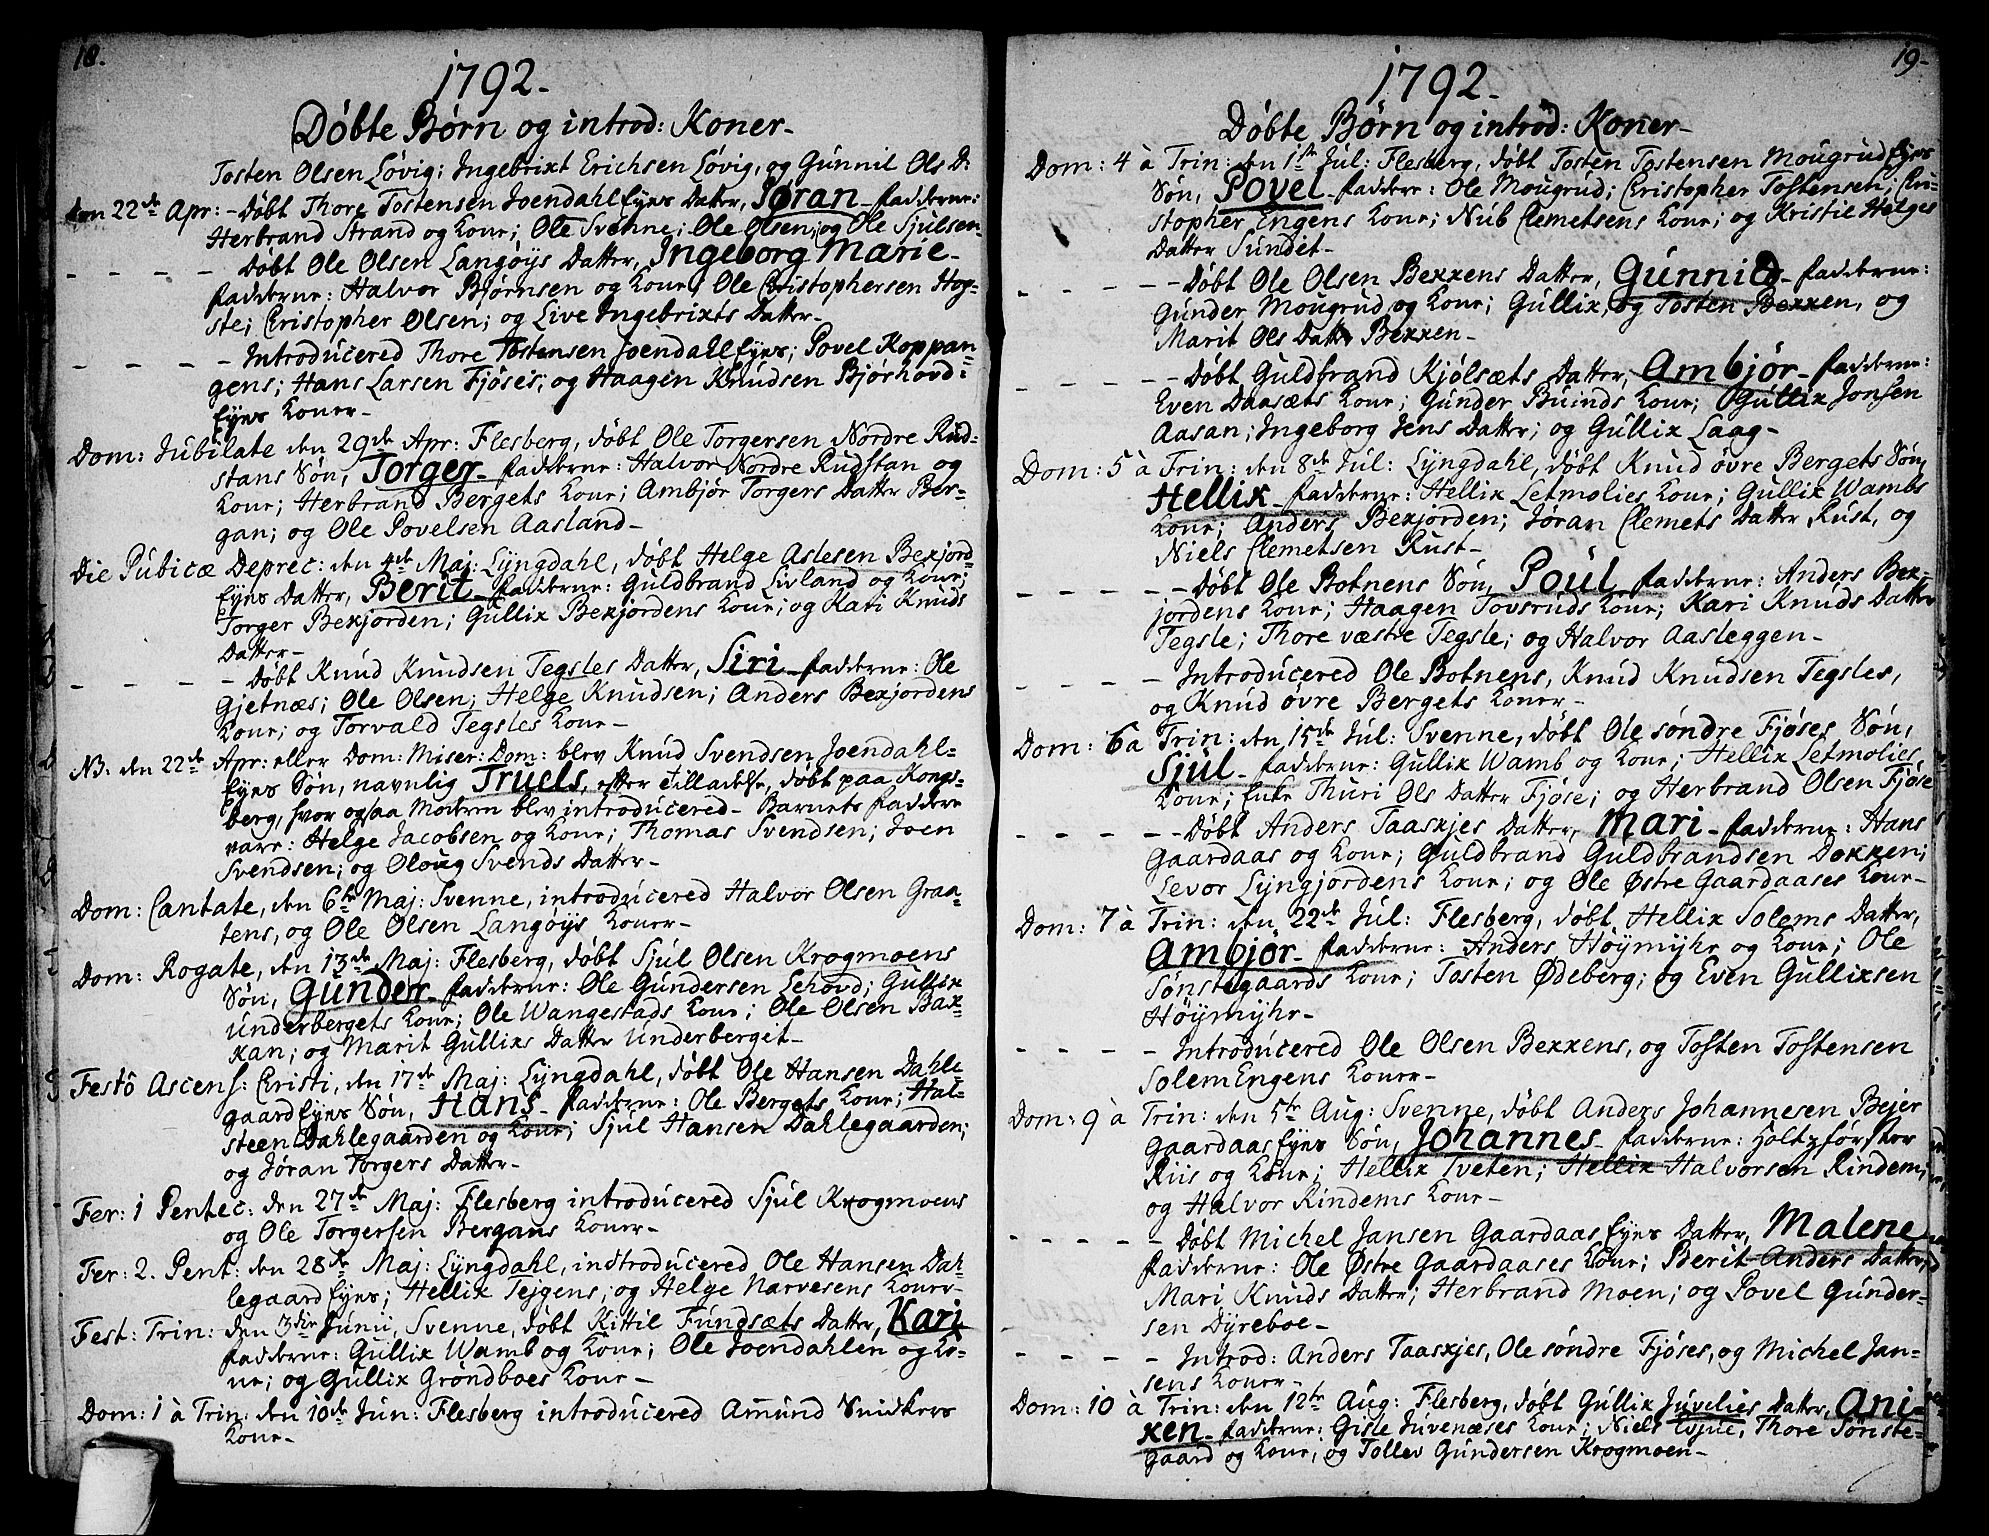 18.
1792.
Döbte Börn og introd: Koner.
Tosten Olsen Lövig; Ingebrixt Erichsen Lövig, og Gunnil Ols D:
den 22de Apr: - Döbt Thore Tostensen Joendahl Eyes Datter, Jöran. fadderne:
Herbrand Strand og Kone; Ole Svenne; Ole Olsen; og Ole Sjulsen.
- - - - Döbt Ole Olsen Langöys Datter, Ingeborg Marie.
fadderne: Halvor Björnsen og Kone; Ole Christophersen Hog-
ste; Cristopher Olsen; og Live Ingebrixts Datter.
- - - - Introducered Thore Tostensen Joendahl Eyes; Povel Koppan-
gens; Hans Larsen Fjöses; og Haagen Knudsen Björhovd-
Eyes Koner.
Dom: Jubilate den 29de Apr: Flesberg, döbt Ole Torgersen Nordre Rud-
stans Sön, Torger. fadderne: Halvor Nordre Rugstan og
Kone; Herbrand Bergets Kone; Ambjör Torgers Datter Ber-
gan; og Ole Povelsen Aasland.
Die Pubicæ Deprec: den 4de Maj: Lyngdahl, döbt Helge Aslesen Bexjord
Eyes Datter, Berit. fadderne: Guldbrand Livland og Kone;
Torger Bexjorden; Gullix Bexjordens Kone; og Kari Knuds
Datter.
- - - - Döbt Knud Knudsen Tegsles Datter, Siri. fadderne: Ole
Gjetnæs; Ole Olsen; Helge Knudsen; Anders Bexjordens
Kone; og Torvald Tegsles Kone.
NB: den 22de Apr: eller Dom: Miser: Dom: blev Knud Svendsen Joendahl-
Eyes Sön, navnlig Truels, efter Tilladelse, döbt paa Kongs-
berg, hvor ogsaa Moderen blev introducered. Barnets faddere
vare: Helge Jacobsen og Kone; Thomas Svendsen; Joen
Svendsen; og Oloug Svends Datter.
Dom: Cantate, den 6te Maj: Svenne, introducered Halvor Olsen Graa-
tens, og Ole Olsen Langöys Koner.
Dom: Rogate, den 13de Maj: Flesberg, döbt Sjul Olsen Krogmoens
Sön, Gunder. fadderne: Ole Gundersen Lehovd; Gullix
Underbergets Kone; Ole Wangestads Kone; Ole Olsen Bax-
kan; og Marit Gullixs Datter Underberget.
Festo Ascens: Cristi, den 17de Maj: Lyngdahl, döbt Ole Hansen Dahle-
gaard Eyes Sön, Hans. fadderne: Ole Bergets Kone; Hal-
steen Dahlegaarden og Kone; Sjul Hansen Dahlegaarden;
og Jöran Torgers Datter.
Fer: 1 Pentec: den 27de Maj: Flesberg introducered Sjul Krogmoens
og Ole Torgersen Bergans Koner.
Fer: 2. Pent: den 28de Maj: Lyngdahl, indtroducered Ole Hansen Dah-
legaard Eyes; Hellix Tejgens; og Helge Narvesens Koner.
Fest: Trin: den 3die Junii, Svenne, döbt Kittil Fundsæts Datter, Kari
fadderne: Gullix Wamb og Kone; Ole Joendahlen og Ko-
ne; og Gullix Gröndboes Kone.
Dom: 1 à Trin: den 10de Jun: Flesberg introducered Amund Snidkers
Kone.
19.
1792.
Döbte Börn og introd: Koner.
Dom: 4 à Trin: den 1ste Jul: Flesberg, döbt Tosten Tostensen Mougrud Eyes
Sön, Povel. faddere: Ole Mougrud; Cristopher Tostensen; Cri-
stopher Engens Kone; Nub Clemetsens Kone; og Kristie Helges
Datter Sundet.
- - - - Döbt Ole Olsen Bexxens Datter, Gunnild. fadderne:
Gunder Mougrud og Kone; Gullix, og Tosten Bexxen, og
Marit Ols Datter Bexxen.
- - - - Döbt Guldbrand Kjölsæts Datter, Ambjör. fadderne:
Even Daasæts Kone; Gunder Buinds Kone; Gullix Jonsen
Aasan; Ingeborg Jens Datter; og Gullix Laag.
Dom: 5 à Trin: den 8de Jul: Lyngdahl, döbt Knud övre Bergets Sön,
Hellix. fadderne: Hellix Letmolies Kone; Gullix Wambs
Kone; Anders Bexjorden; Jöran Clemets Datter Rust, og
Niels Clemetsen Rust.
- - - - Döbt Ole Botnens Sön, Poul. fadderne: Anders Bex-
jordens Kone; Haagen Tovsruds Kone; Kari Knuds Datter
Tegsle; Thore væstre Tegsle; og Halvor Aasleggen.
- - - - Introducered Ole Botnens, Knud Knudsen Tegsles,
og Knud övre Bergets Koner.
Dom: 6 à Trin: den 15de Jul: Svenne, döbt Ole söndre Fjöses Sön,
Sjul. fadderne: Gullix Wamb og Kone; Hellix Letmolies
Kone; Enke Thuri Ols Datter Fjöse; og Herbrand Olsen Fjöse
- - - - Döbt Anders Taasxjes Datter, Mari. fadderne: Hans
Gaardaas og Kone; Guldbrand Guldbrandsen Doxxen;
Levor Lyngjordens Kone; og Ole Østre Gaardaases Kone.
Dom: 7 à Trin: den 22de Jul: Flesberg, döbt Hellix Solems Datter,
Ambjör. fadderne: Anders Höymyhr og Kone; Ole
Sönstegaards Kone; Tosten Ødeberg; og Even Gullixsen
Höymyhr.
- - - - Introducered Ole Olsen Bexxens, og Tosten Tostensen
Solem Engens Koner.
Dom: 9 à Trin: den 5te Aug: Svenne, döbt Anders Johannesen Bejer
Gaardaas Eyes Sön, Johannes. fadderne: Holtzförster
Riis og Kone; Hellix Tveten; Hellix Halvorsen Rindem,
og Halvor Rindems Kone.
- - - - Döbt Michel Jansen Gaardaas Eyes Datter, Malene
fadderne: Ole Østre Gaardaases Kone; Berit Anders Datter;
Mari Knuds Datter; Herbrand Moen; og Povel Gunder-
sen Dyreboe.
- - - - Introd: Anders Taasxjes, Ole söndre Fjöses, og Michel Jan-
sens Koner.
Dom: 10 à Trin: den 12te Aug: Flesberg, döbt Gullix Juvelies Datter, Ani-
xen. fadderne: Gisle Juvenæses Kone; Niels Evjue; Thore Sönste-
gaard og Kone; og Tollev Gundersen Krogmoen.